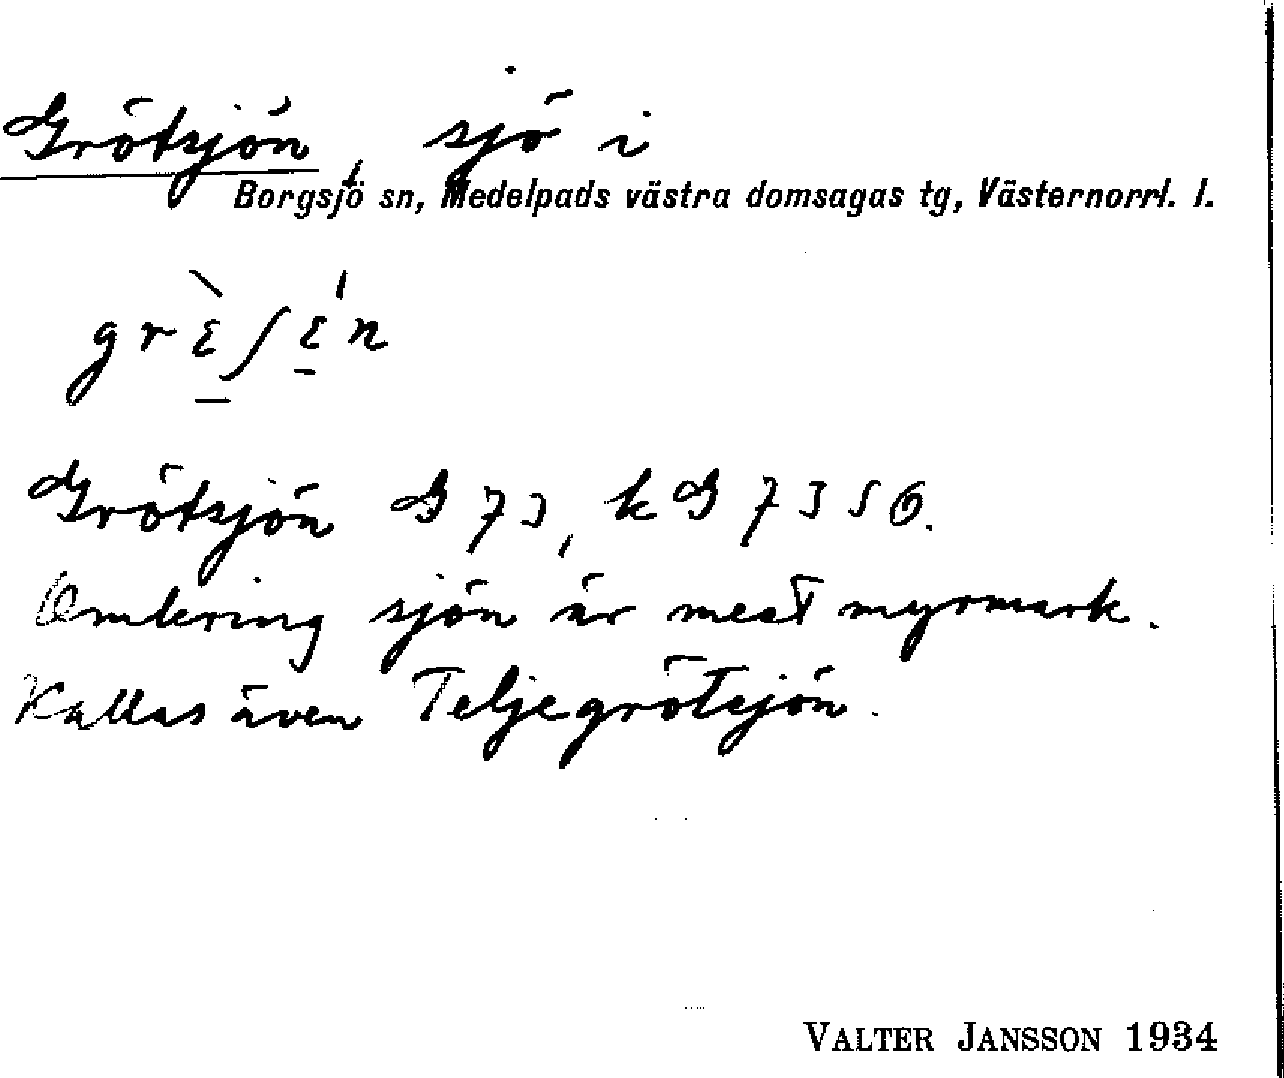 Grötsjön, sjö i
Borgsjö sn, Medelpads västra domsagas tg, Västernorrl. l.
Grötsjön G 73, k G 7356.
Omkring sjön är mest myrmark.
Kallas även Teljegrötsjön.
VALTER JANSSON 1934